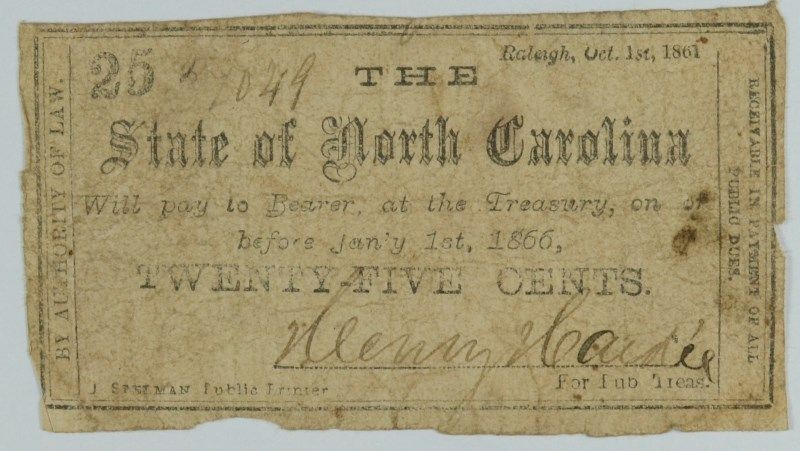 Raleigh, Oct. 1st, 1861
25
7049
THE
State of North Carolina
Will pay to Bearer, at the Treasury, on or
before Jan'y 1st, 1866,
TWENTY-FIVE CENTS.
Henry Hardie
J SPELMAN Public Printer
For Pub Treas.
BY AUTHORITY OF LAW.
RECEIVABLE IN PAYMENT OF ALL
PUBLIC DUES.